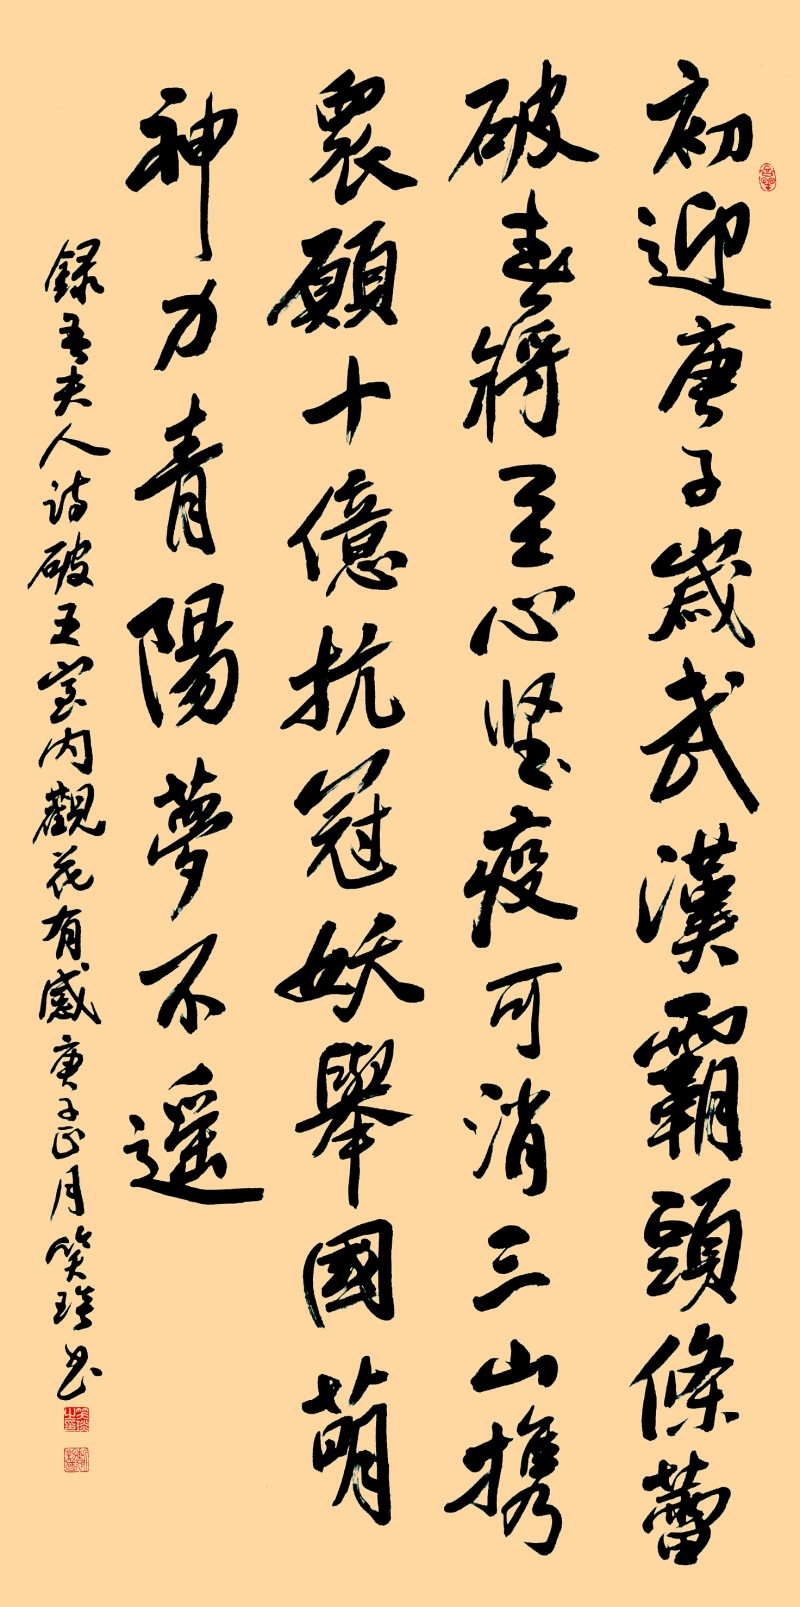 初迎庚子歲武漢霸頭條蕾
破春將至心坚疫可消三山携
眾願十億抗冠妖舉國萌
神力青陽夢不遥
録吾夫人诗破五室内觀花有感庚子正月笑璿书